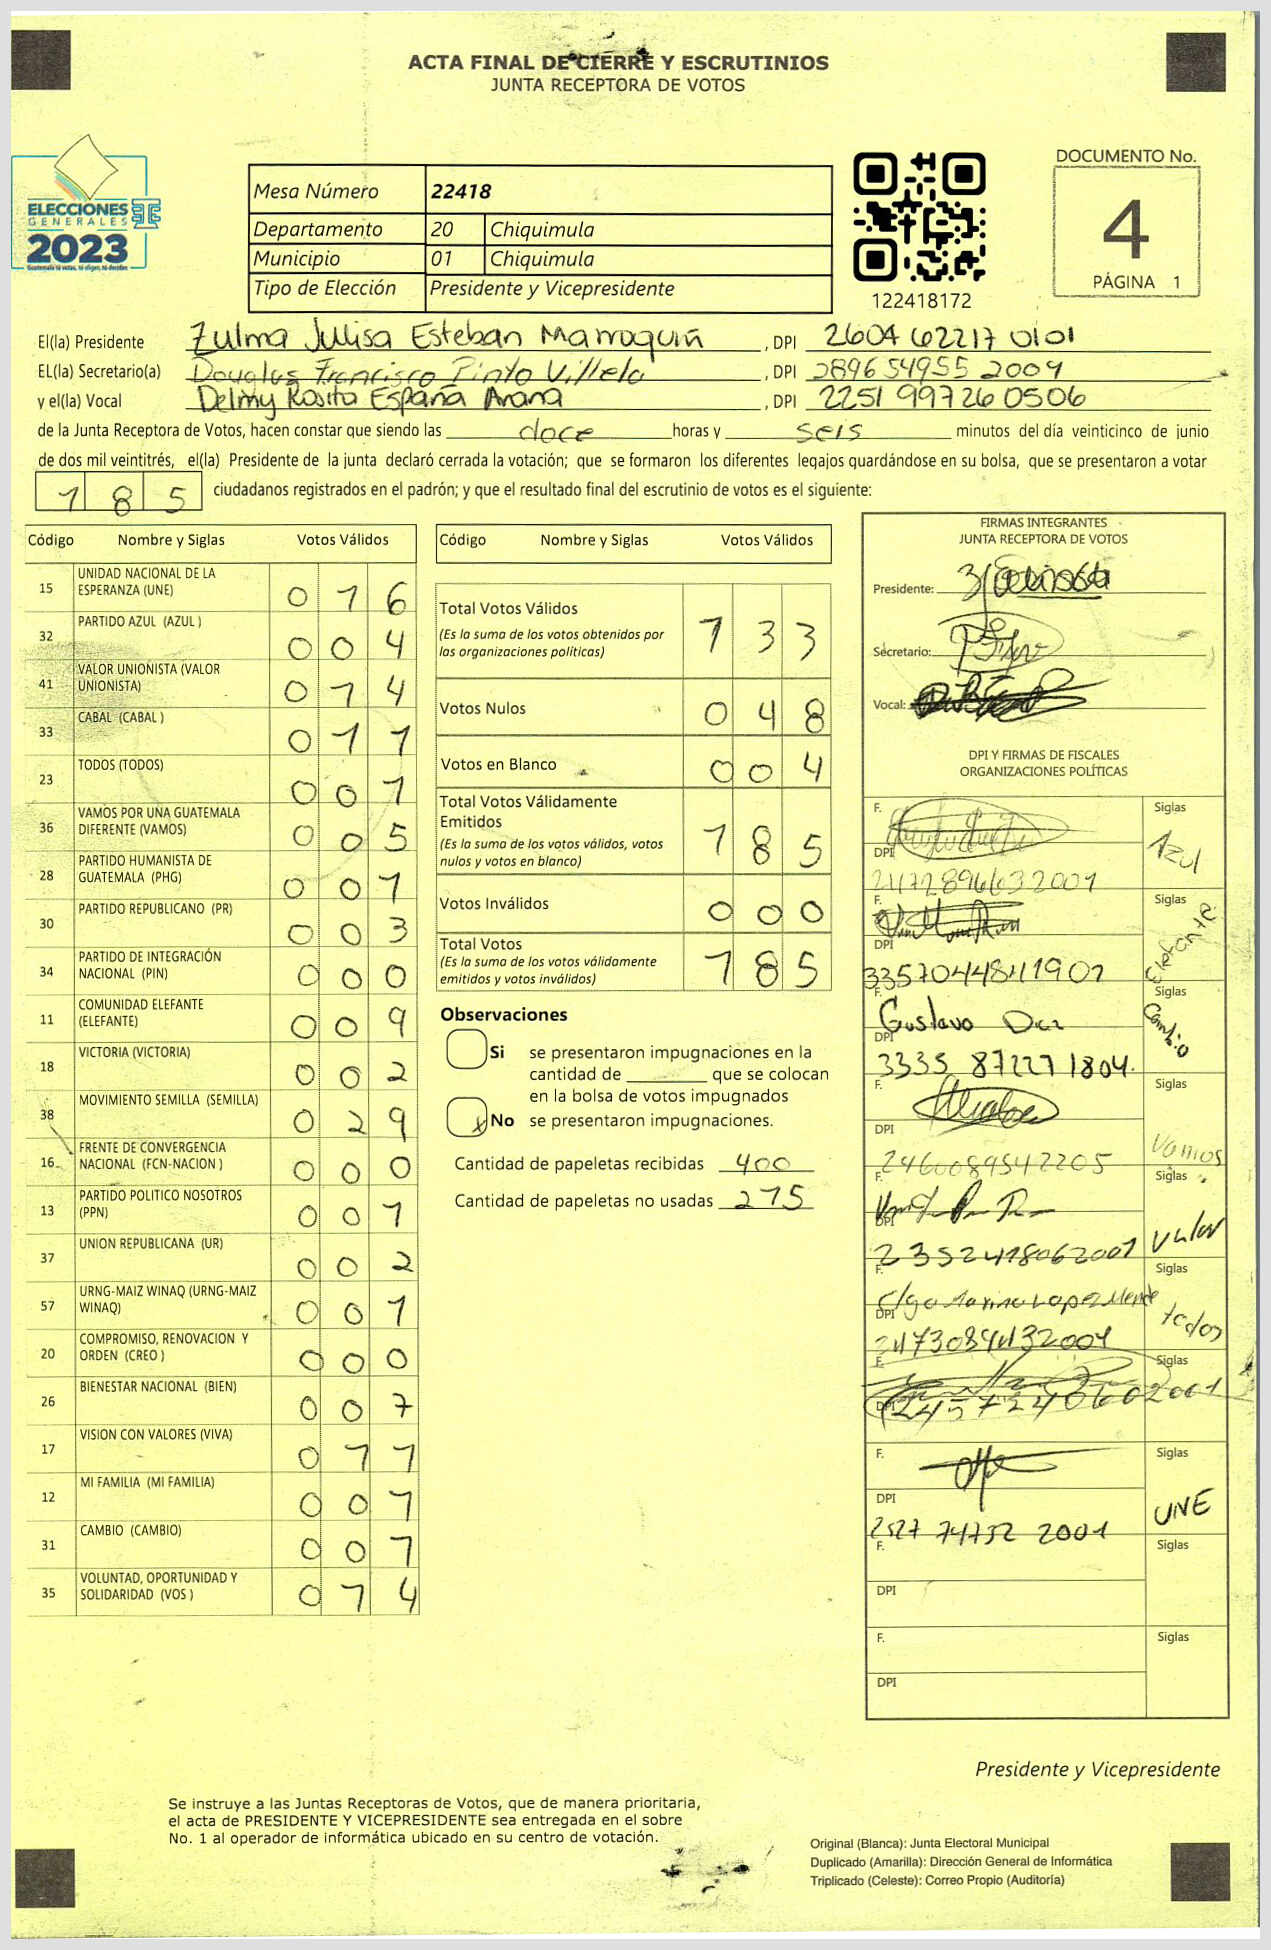 ACTA FINAL DE CIERRE Y ESCRUTINIOS
JUNTA RECEPTORA DE VOTOS
ELECCIONES
GENERALES
2023
Guatemala tú votas, tú eliges, tú decides
Mesa Número 22418
Departamento 20 Chiquimula
Municipio 01 Chiquimula
Tipo de Elección Presidente y Vicepresidente
122418172
DOCUMENTO No.
4
PÁGINA 1
El(la) Presidente Zulma Julisa Esteban Marroquin , DPI 2604 62217 0101
EL(la) Secretario(a) Douglas Francisco Pinto Villela , DPI 2896 54955 2009
y el(la) Vocal Delmy Rosita España Arana , DPI 2251 99726 0506
de la Junta Receptora de Votos, hacen constar que siendo las doce horas y seis minutos del día veinticinco de junio
de dos mil veintitrés, el(la) Presidente de la junta declaró cerrada la votación; que se formaron los diferentes legajos guardándose en su bolsa, que se presentaron a votar
185 ciudadanos registrados en el padrón; y que el resultado final del escrutinio de votos es el siguiente:
Código Nombre y Siglas Votos Válidos
15 UNIDAD NACIONAL DE LA ESPERANZA (UNE) 0 1 6
32 PARTIDO AZUL (AZUL ) 0 0 4
41 VALOR UNIONISTA (VALOR UNIONISTA) 0 1 4
33 CABAL (CABAL ) 0 1 1
23 TODOS (TODOS) 0 0 1
36 VAMOS POR UNA GUATEMALA DIFERENTE (VAMOS) 0 0 5
28 PARTIDO HUMANISTA DE GUATEMALA (PHG) 0 0 1
30 PARTIDO REPUBLICANO (PR) 0 0 3
34 PARTIDO DE INTEGRACIÓN NACIONAL (PIN) 0 0 0
11 COMUNIDAD ELEFANTE (ELEFANTE) 0 0 9
18 VICTORIA (VICTORIA) 0 0 2
38 MOVIMIENTO SEMILLA (SEMILLA) 0 2 9
16 FRENTE DE CONVERGENCIA NACIONAL (FCN-NACION ) 0 0 0
13 PARTIDO POLITICO NOSOTROS (PPN) 0 0 1
37 UNION REPUBLICANA (UR) 0 0 2
57 URNG-MAIZ WINAQ (URNG-MAIZ WINAQ) 0 0 1
20 COMPROMISO, RENOVACION Y ORDEN (CREO ) 0 0 0
26 BIENESTAR NACIONAL (BIEN) 0 0 7
17 VISION CON VALORES (VIVA) 0 1 1
12 MI FAMILIA (MI FAMILIA) 0 0 1
31 CAMBIO (CAMBIO) 0 0 1
35 VOLUNTAD, OPORTUNIDAD Y SOLIDARIDAD (VOS ) 0 1 4
Código Nombre y Siglas Votos Válidos
Total Votos Válidos 1 3 3
(Es la suma de los votos obtenidos por
las organizaciones políticas)
Votos Nulos 0 4 8
Votos en Blanco 0 0 4
Total Votos Válidamente
Emitidos 1 8 5
(Es la suma de los votos válidos, votos
nulos y votos en blanco)
Votos Inválidos 0 0 0
Total Votos 1 8 5
(Es la suma de los votos válidamente
emitidos y votos inválidos)
Observaciones
Si se presentaron impugnaciones en la
cantidad de ________ que se colocan
en la bolsa de votos impugnados
x No se presentaron impugnaciones.
Cantidad de papeletas recibidas 400
Cantidad de papeletas no usadas 215
FIRMAS INTEGRANTES
JUNTA RECEPTORA DE VOTOS
Presidente:
Secretario:
Vocal:
DPI Y FIRMAS DE FISCALES
ORGANIZACIONES POLÍTICAS
F. Siglas
DPI Azul
2472896632001
F. Siglas
DPI Elefante
3357044841901
F. Gustavo Siglas
DPI Cambio
3335 87227 1804.
F. Siglas
DPI Vamos
2460089542205
F. Siglas
DPI Valor
2352418062001
F. Siglas
DPI todos
F. Siglas
DPI 2457240602001
F. Siglas
DPI UNE
2527 74752 2001
F. Siglas
DPI
F. Siglas
DPI
Presidente y Vicepresidente
Se instruye a las Juntas Receptoras de Votos, que de manera prioritaria,
el acta de PRESIDENTE Y VICEPRESIDENTE sea entregada en el sobre
No. 1 al operador de informática ubicado en su centro de votación.
Original (Blanca): Junta Electoral Municipal
Duplicado (Amarilla): Dirección General de Informática
Triplicado (Celeste): Correo Propio (Auditoría)